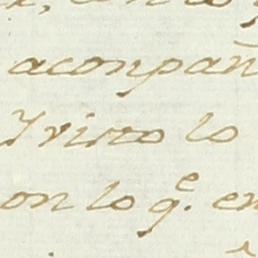 acompañ
Y visto lo
on lo q.e en